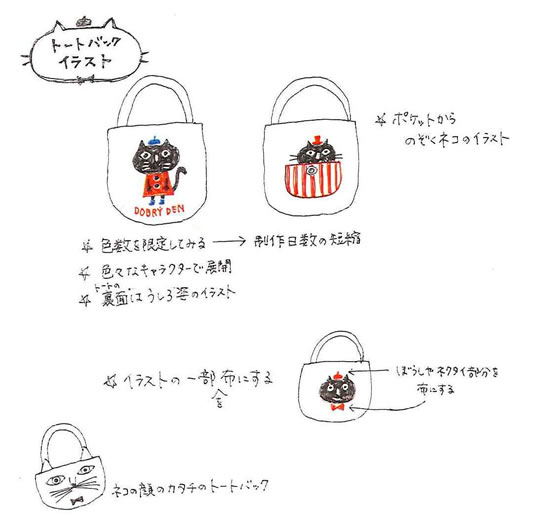 トートバック
イラスト
☆ ポケットから
のぞくネコのイラスト
DOBRÝ DEN
☆ 色数を限定してみる → 制作日数の短縮
☆ 色々なキャラクターで展開
☆ トートの裏面はうしろ姿のイラスト
☆ イラストの一部を布にする
ぼうしやネクタイ部分を
布にする
ネコの顔のカタチのトートバック